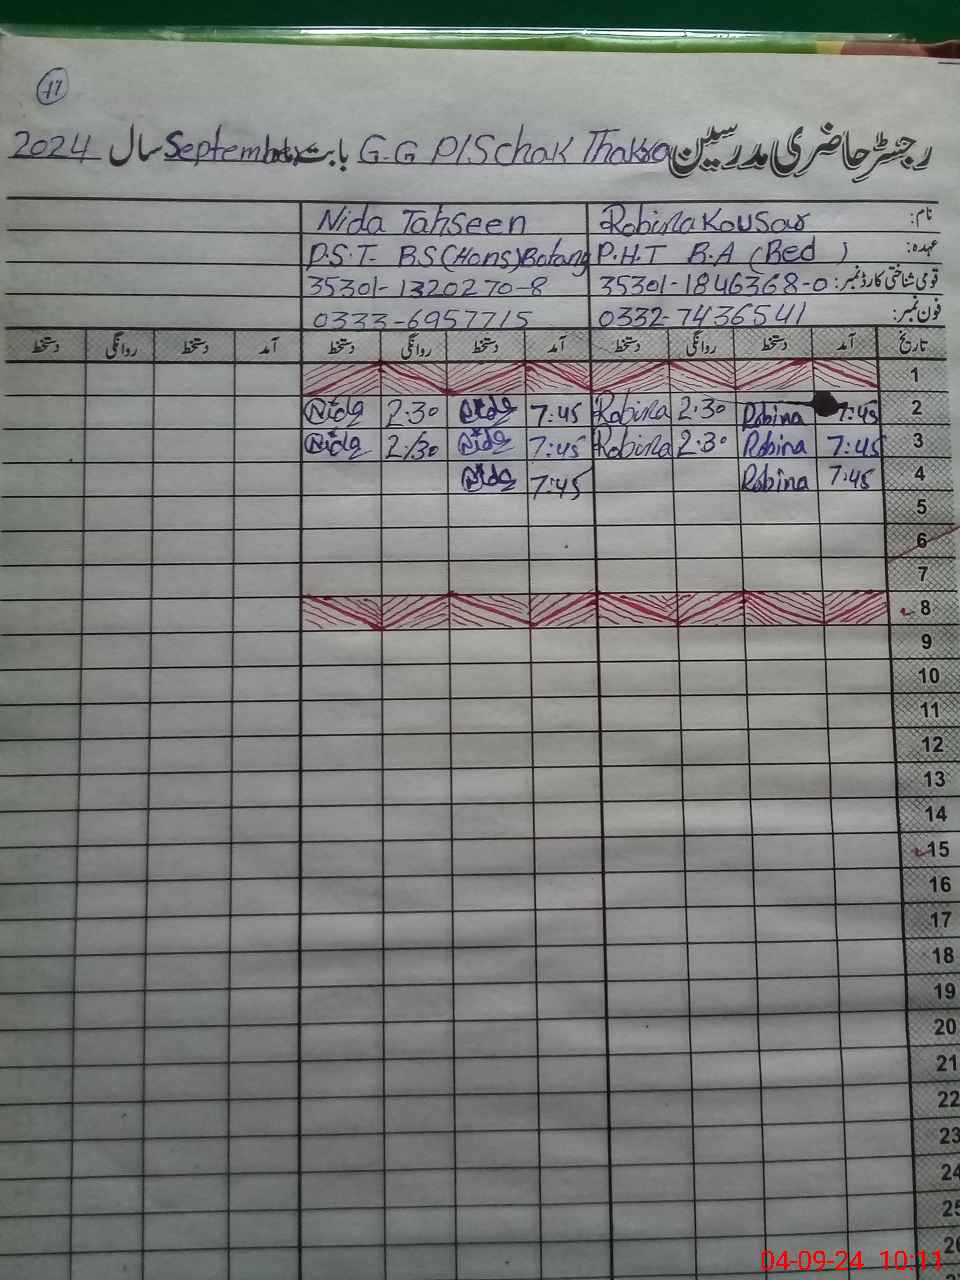 17
رجسٹر حاضری مدرسین G.G P/S Chak Thakra بابت September سال 2024
نام: Robina Kousar Nida Tahseen
عہدہ: P.H.T B.A (Bed) P.S.T- BS(Hons)Botany
قومی شناختی کارڈ نمبر: 35301-1846368-0 35301-1320270-8
فون نمبر: 0332-7436541 0333-6957715
تاریخ آمد دستخط روانگی دستخط آمد دستخط روانگی دستخط آمد دستخط روانگی دستخط
1
2 7:45 Robina 2:30 Robina 7:45 Nida 2:30 Nida
3 7:45 Robina 2:30 Robina 7:45 Nida 2/30 Nida
4 7:45 Robina 7:45 Nida
5
6
7
8
9
10
11
12
13
14
15
16
17
18
19
20
21
22
23
24
25
26
04-09-24 10:11